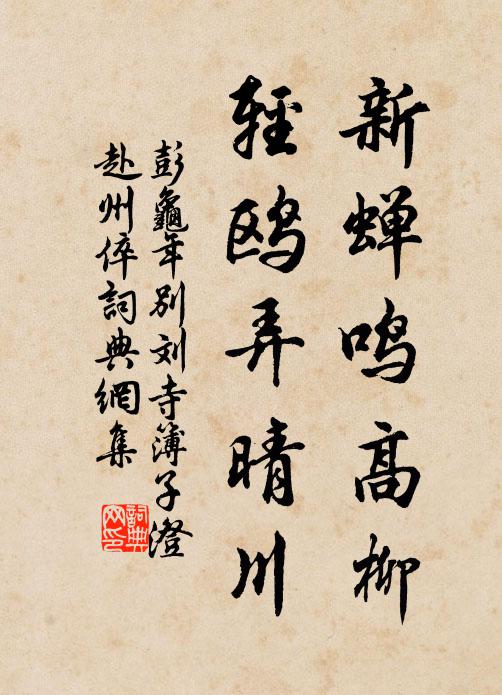 新蝉鸣高柳
轻鸥弄晴川
彭龜年别刘寺簿子澄
赴州倅詞典網集
詞典网印